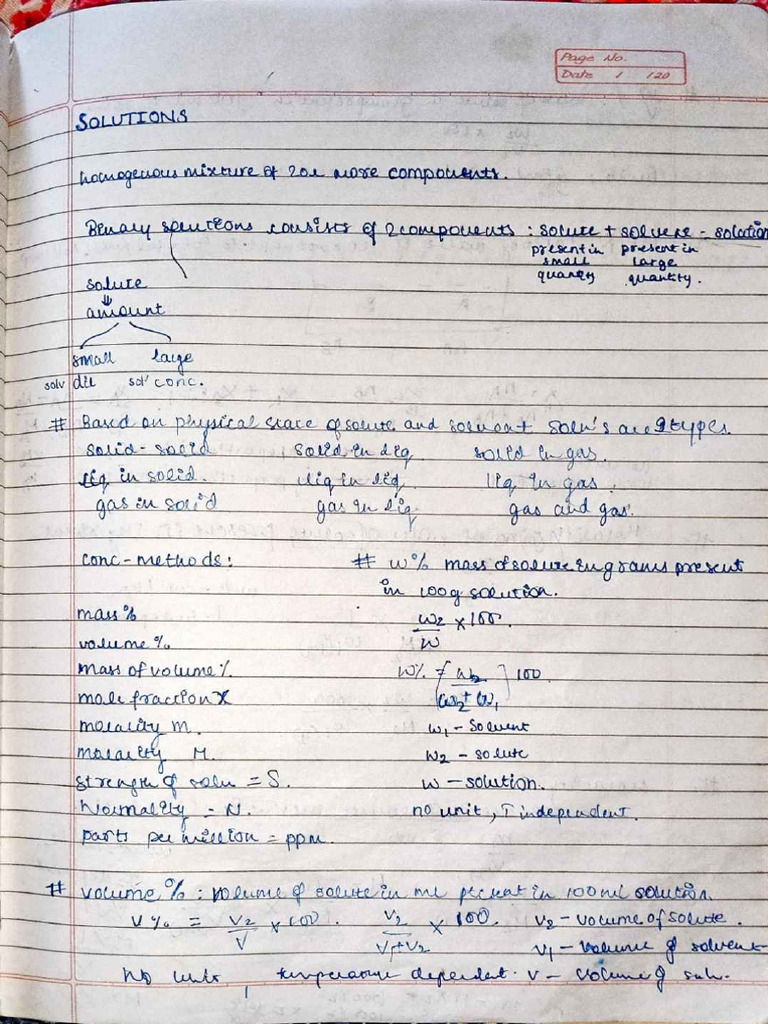 Page No.
Date 1 120
SOLUTIONS
homogenous mixture of 2 or more components.
Binary solutions consists of 2 components : solute + solvent = solution
present in present in
small large
quantity quantity.
solute
⇓
amount
small large
solⁿ dil solⁿ conc.
# Based on physical state of solute and solvent soln's are 9 types.
solid-solid solid in liq. solid in gas.
liq in solid. liq in liq. liq in gas.
gas in solid gas in liq. gas and gas.
conc-methods: # w% mass of solute in grams present
in 100g solution.
mass% w2/w × 100.
volume %
mass of volume % w% = [w2/(w2 + w1)] 100.
mole fraction X
molality m. w1 - solvent
molarity M. w2 - solute
strength of soln = S. w - solution.
Normality = N. no unit, T independent.
parts per million = ppm.
# volume % : volume of solute in ml present in 100 ml solution.
V% = V2/V × 100. V2/(V1+V2) × 100. V2 - volume of solute.
V1 - volume of solvent
No units, temperature dependent. V - volume of soln.